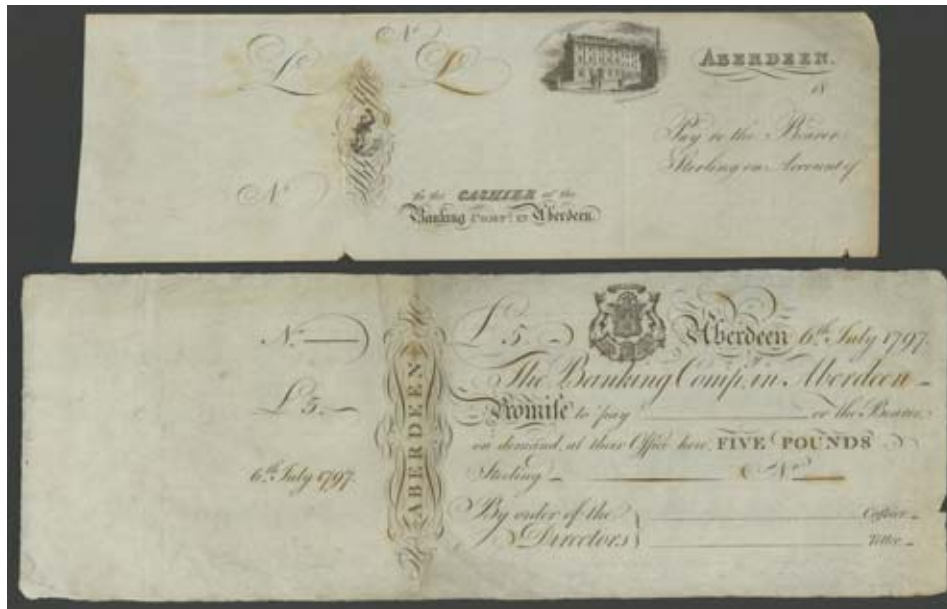 Nº
£ £
ABERDEEN.
18
Pay to the Bearer
Sterling on Account of
Nº
To the CASHIER of the
Banking COMPY. IN Aberdeen.
Nº
£5
Aberdeen 6th July 1797.
The Banking Compy. in Aberdeen
£5.
Promise to pay or the Bearer
on demand, at their Office here, FIVE POUNDS
6th July 1797.
Sterling Nº
ABERDEEN
By order of the
Directors
Cashier
Teller